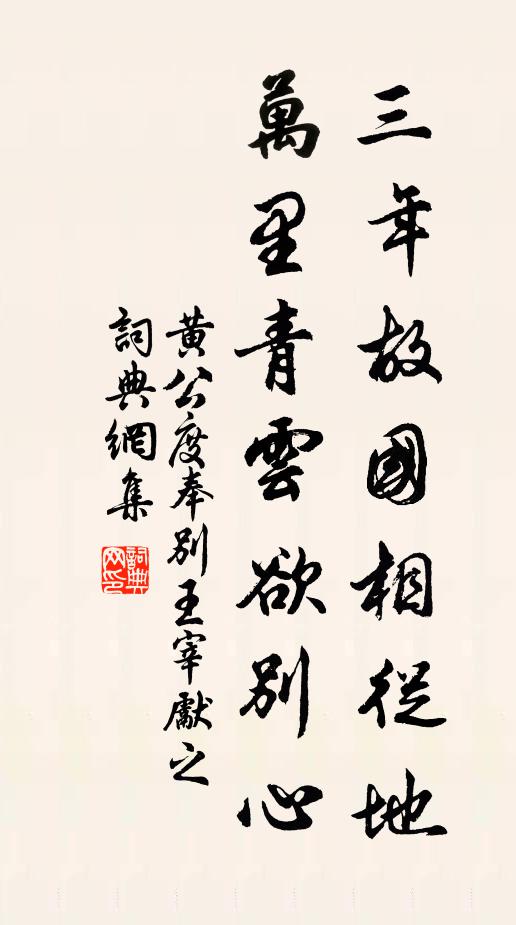 三年故國相從地
萬里青雲欲別心
黃公度奉別王宰獻之
詞典網集
詞典网印